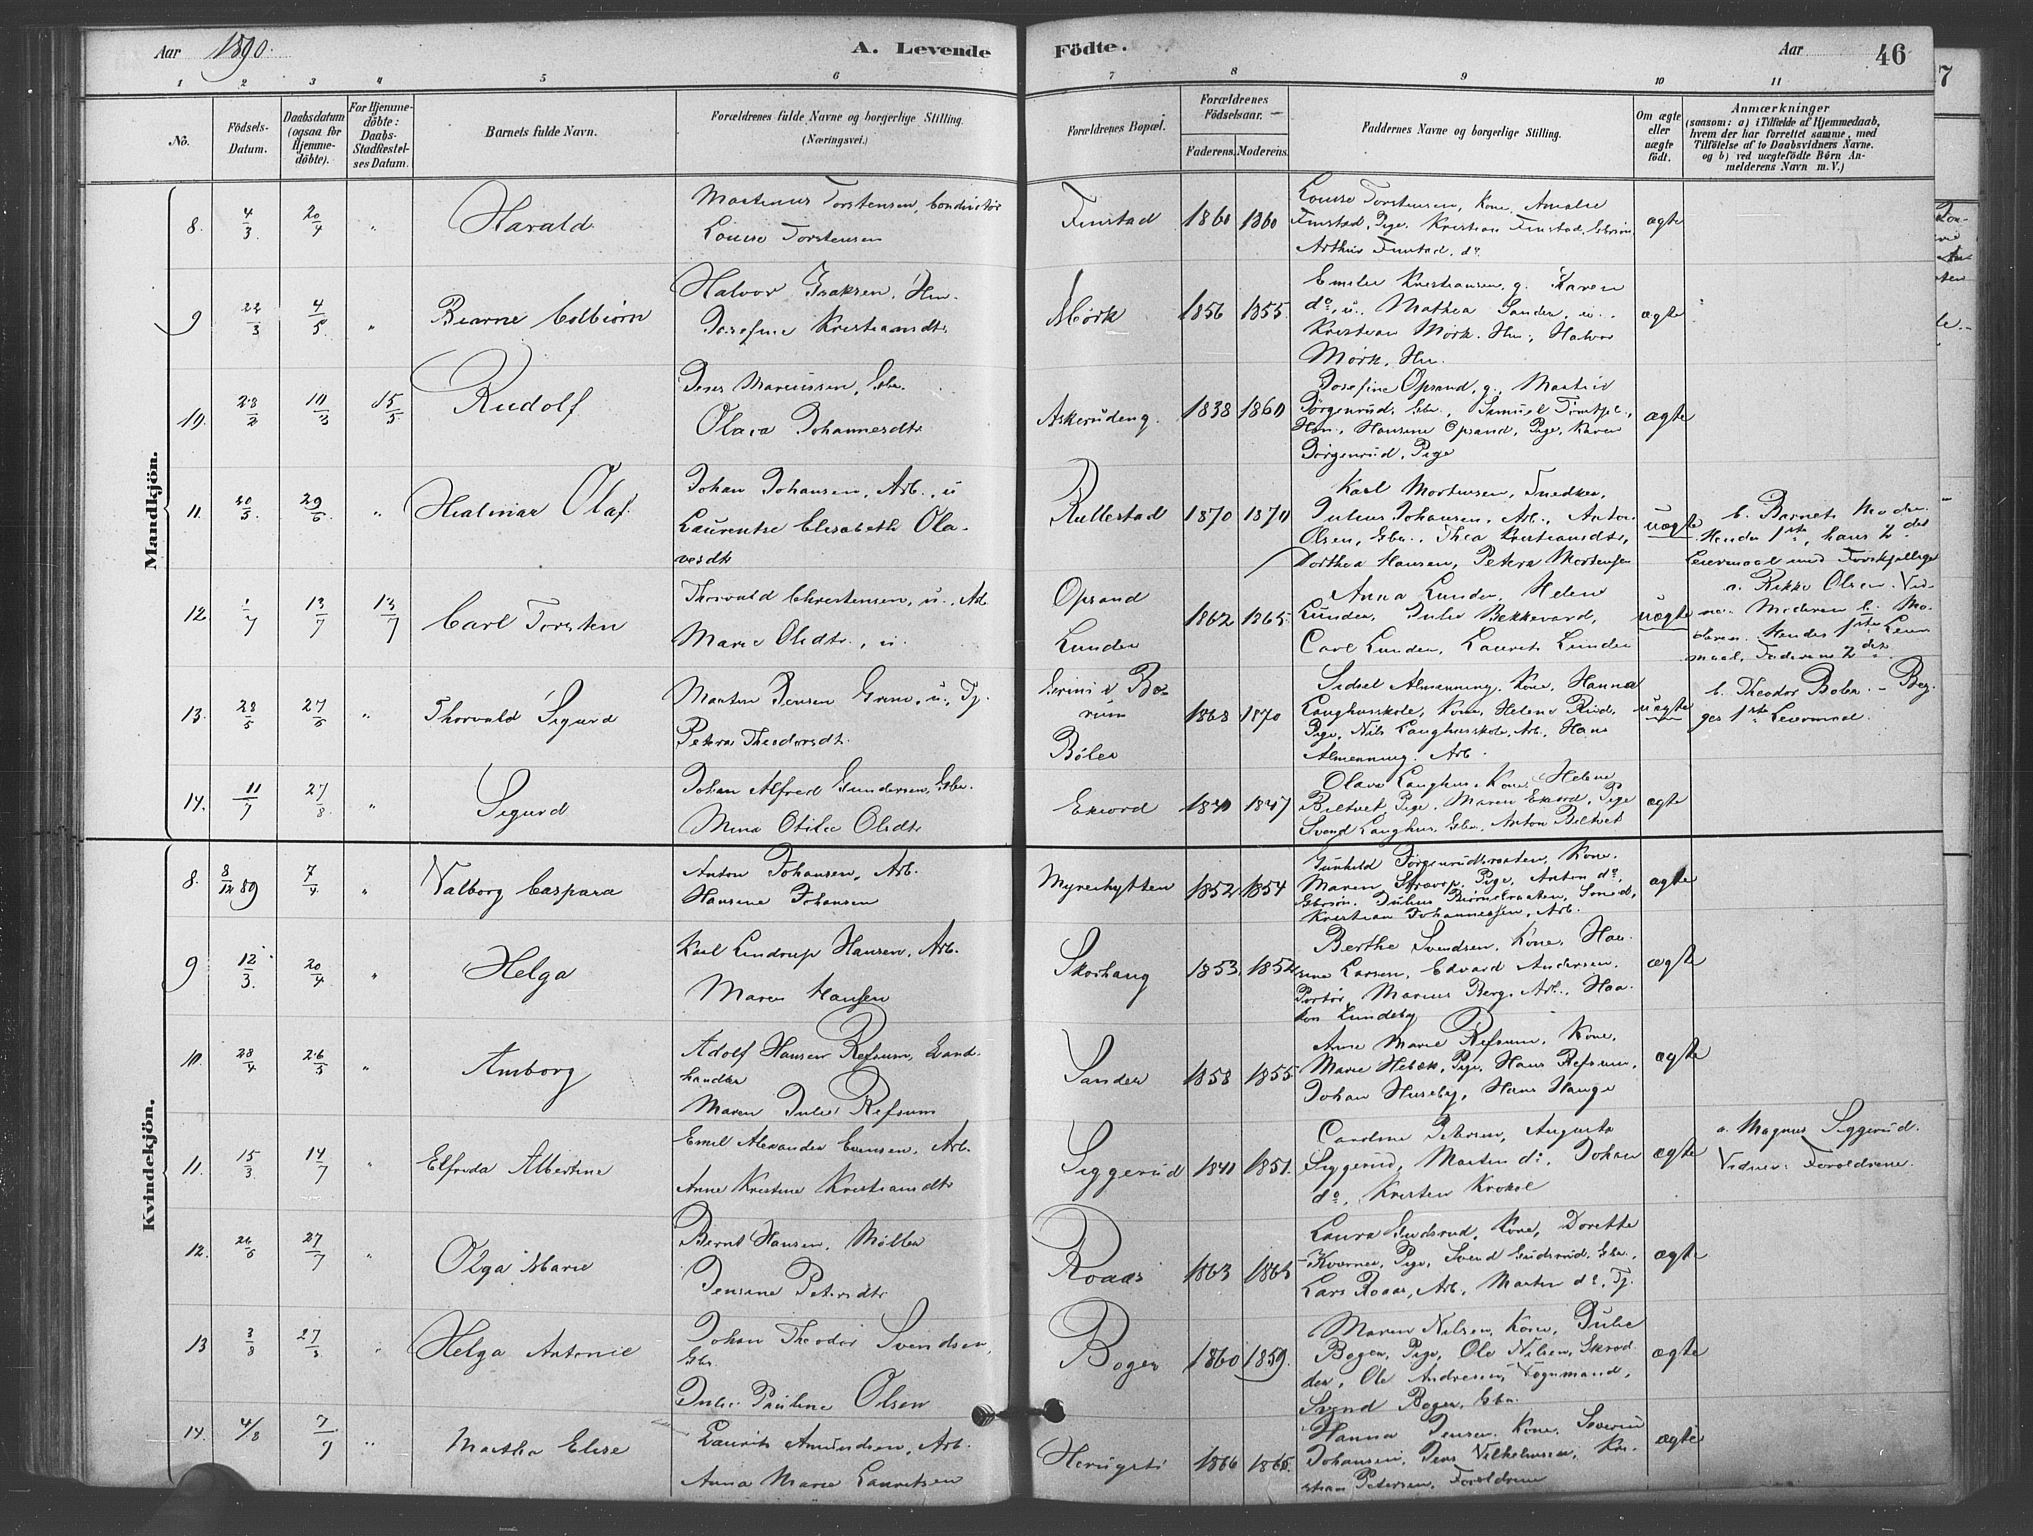 Aar 1890.
A. Levende Födte.
Aar
46
1 2 3 4 5 6 7 8 9 10 11
No.
Födsels-
Datum.
Daabsdatum
(ogsaa for
Hjemme-
döbte).
For Hjemme-
döbte:
Daabs-
Stadfæstel-
ses Datum.
Barnets fulde Navn.
Forældrenes fulde Navne og borgerlige Stilling.
(Næringsvei.)
Forældrenes Bopæl.
Forældrenes
Födselsaar.
Faderens.
Moderens.
Faddernes Navne og borgerlige Stilling.
Om ægte
eller
uægte
født.
Anmærkninger
(saasom: a) i Tilfælde af Hjemmedaab,
hvem der har forrettet samme, med
Tilföielse af to Daabsvidners Navne.
og b) ved uægtefödte Börn An-
melderens Navn m. V.)
Mandkjön.
8. 4/3 20/4 " Harald
Martinus Torstensen, Conductör
Louise Torstensen
Finstad 1860 1860
Louise Torstensen, Kone, Amalie
Finstad, Pige, Kristian Finstad, Gbrsön,
Arthur Finstad, do
ægte
9 22/3 4/5 " Bjarne Colbiörn
Halvor Isaksen, Hm.
Josefine Kristiansdtr
Mörk 1856 1855
Emilie Kristiansen, g. Karen
do, u. Mathea Sander, u.
Kristian Mörk, Hm, Halvor
Mörk, Hm.
ægte
10. 28/2 10/3 15/5 Rudolf
Jens Marcussen, Gbr.
Olava Johannesdtr
Askerudeng. 1838 1860
Josefine Opsand, g., Martin
Jörgenrud, Gbr., Samuel
Hansine Opsand, Pige, Karen
Jörgenrud, Pige
ægte
11. 20/5 29/6 " Hialmar Olaf
Johan Johansen, Arb., u
Laurentse Elisabeth Ola-
vesdtr
Rullestad 1870 1870
Karl Mortensen, Snedker,
Julius Johansen, Arb., Anton
Olsen, Gbr., Thea Kristiansdtr,
Dorthea Hansen, Petra Mortensen
uægte
b. Barnets Moder.
Hendes 1ste, hans 2det
Leiermaal med Forskjellige
12 1/7 13/7 13/7 Carl Torsten
Thorvald Christensen, u., Arb
Marie Olsdtr., u.
Opsand
Lunder
1862 1865
Anna Lunder, Helene
Lunder, Julie Bekkevard,
Carl Lunder, Laurits Lunder
uægte
a. Rikke Olsen. Vid-
ne: Moderen b. Mo-
deren. Hendes 1ste Leier
maal, Faderens 2det
13. 28/5 27/6 " Thorvald Sigurd
Martin Jensen Grini, u., Tj.
Petra Theodorsdtr.
Grini i Bæ-
rum
Böler
1868 1870
Sidsel Almenning, Kone, Hanna
Langhusskole, Kone, Helene Rud,
Pige, Nils Langhusskole, Arb, Hans
Almenning, Arb.
uægte
b. Theodor Böler. - Beg-
ges 1ste Leiermaal.
14. 11/7 27/8 " Sigurd
Johan Alfred Gundersen, Gbr.
Mina Otilie Olsdtr
Ekeord 1840 1847
Olava Langhus, Kone, Helene
Biltvet Pige, Maren Ekeord, Pige
Svend Langhus, Gbr, Anton Biltvet
ægte
Kvindekjön.
8. 8/12 89 7/4 " Valborg Caspara
Anton Johansen, Arb.
Hansine Johansen
Myrerhytten 1852 1854
Gunhild Jörgenrudsraaten, Kone.
Maren Pige, Anton do,
Gbrsön. Julius Smed,
Kristian Johannessen, Arb.
ægte
9 12/3. 20/4 " Helga
Karl Lindrup Hansen, Arb.
Maren Hansen
Skorhaug 1853 1852
Berthe Svendsen, Kone, Han-
sine Larsen, Edvard Andersen,
Portör, Marius Berg, Arb., Haa-
kon Lundeby
ægte
10. 28/4 26/5 " Amborg
Adolf Hansen Refsum, Land-
handler
Maren Julie Refsum
Sander 1858 1855
Anne Marie Refsum, Kone,
Marie Hebæk, Pige, Hans Refsum,
Johan Huseby, Hans Hauge
ægte
11. 15/3 14/7 " Elfrida Albertine
Emil Alexander Evensen, Arb.
Anne Kristine Kristiansdtr
Siggerud 1841 1851.
Caroline Petersen, Augusta
Siggerud, Martin do, Johan
do, Kristen Krokol
ægte
a. Magnus Siggerud.
Vidner: Forældrene.
12. 26/5 27/7 " Olga Marie
Bernt Hansen, Möller
Jensine Petersdtr
Roaas 1863 1865
Laura Gudsrud, Kone, Dorette
Kvernes, Pige, Svend Gudsrud, Gbr.,
Lars Roaas, Arb, Martin do, Tj.
ægte
13 3/8 27/8 " Helga Antonie
Johan Theodor Svendsen,
Gbr.
Julie Pauline Olsen
Boger 1860 1859.
Maren Nilsen, Kone, Julie
Boger, Pige, Ole Nilsen, Skræd
der, Ole Andersen, Vognmand,
Svend Boger, Gbr.
ægte
14. 4/8 7/9 " Martha Elise
Laurits Amundsen, Arb.
Anna Marie Lauritsen
1866 1865.
Hanna Jensen, Kone, Severin
Johansen, Jens Vilhelmsen, Kri-
stian Petersen, Forældrene
ægte